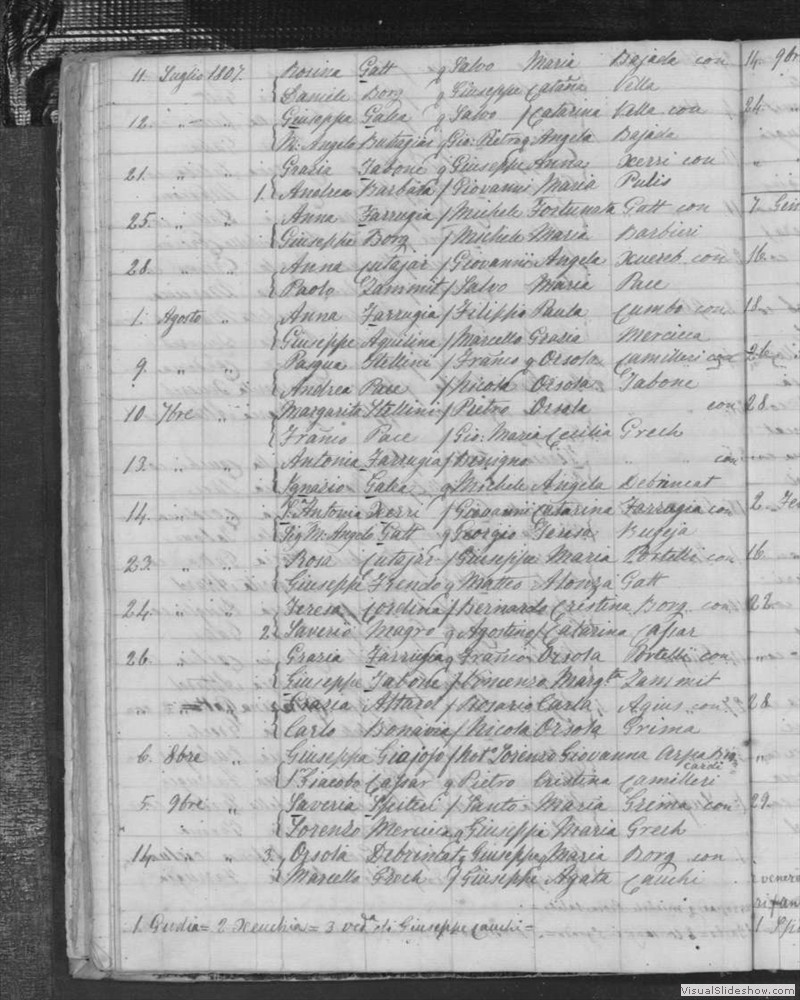 11. Luglio 1807. Rosina Gatt q Salvo Maria Bajada con
Daniele Borg q Giuseppe Catana Vella
12. " " Giuseppa Galea q Salvo / Catarina Valla con
M: Angelo Buttagiar / Gio: Pietro q Angela Bajada
21. " " Grazia Tabone q Giuseppe Anna Xerri con
1. Andrea Barbara / Giovanni Maria Pulis
25. " " Anna Farrugia / Michele Fortunata Gatt con
Giuseppe Borg / Michele Maria Barbieri
28. " " Anna Cutajar / Giovanni Angela Xuereb con
Paolo Zammit / Salvo Maria Pace
1. Agosto " Anna Farrugia / Filippo Paula Cumbo con
Giuseppe Aquilina / Marcello Grazia Mercieca
9. " " Pasqua Stellini / Franco q Orsola Camilleri con
Andrea Pace / Nicola Orsola Tabone
10. 7bre " Margarita Stellini / Pietro Orsola " " con
Franco Pace / Gio: Maria Cecilia Grech
13. " " Antonia Farrugia / Benigno " " con
Ignazio Galea q Michele Angela Debrincat
14. " " Antonia Xerri / Giovanni Catarina Farrugia con
Sig M: Angelo Gatt q Georgio Teresa Bugeja
23. " " Rosa Cutajar / Giuseppe Maria Portelli con
Giuseppe Frendo q Matteo Alonza Gatt
24. " " Teresa Cordina / Bernardo Cristina Borg con
2. Saverio Magro q Agostino / Catarina Cassar
26. " Grazia Farrugia q Franco Orsola Portelli con
Giuseppe Tabone / Vincenzo Marg.ta Zammit
" " Grazia Attard / Rosario Carla Agius con
Carlo Bonavia / Nicola Orsola Grima
6. 8bre " Giuseppa Giajojo / Not.o Lorenzo Giovanna
cardi
S.r Giacobo Cassar q Pietro Cristina Camilleri
5. 9bre " Saveria Spiteri / Santo Maria Grima con
" Lorenzo Mercieca q Giuseppe Maria Grech
14. " 3. Orsola Debrincat q Giuseppe Maria Borg con
Marcello Grech / Giuseppe Agata Cauchi
1. Gudia = 2 Xeuchia = 3 ved.a di Giuseppe Cauchi =
14. 9bre
24.
"
7. Gen
16.
18.
26.
28.
2. Fe
16.
22.
28.
"
29.
1 Spi
VisualSlideshow.com